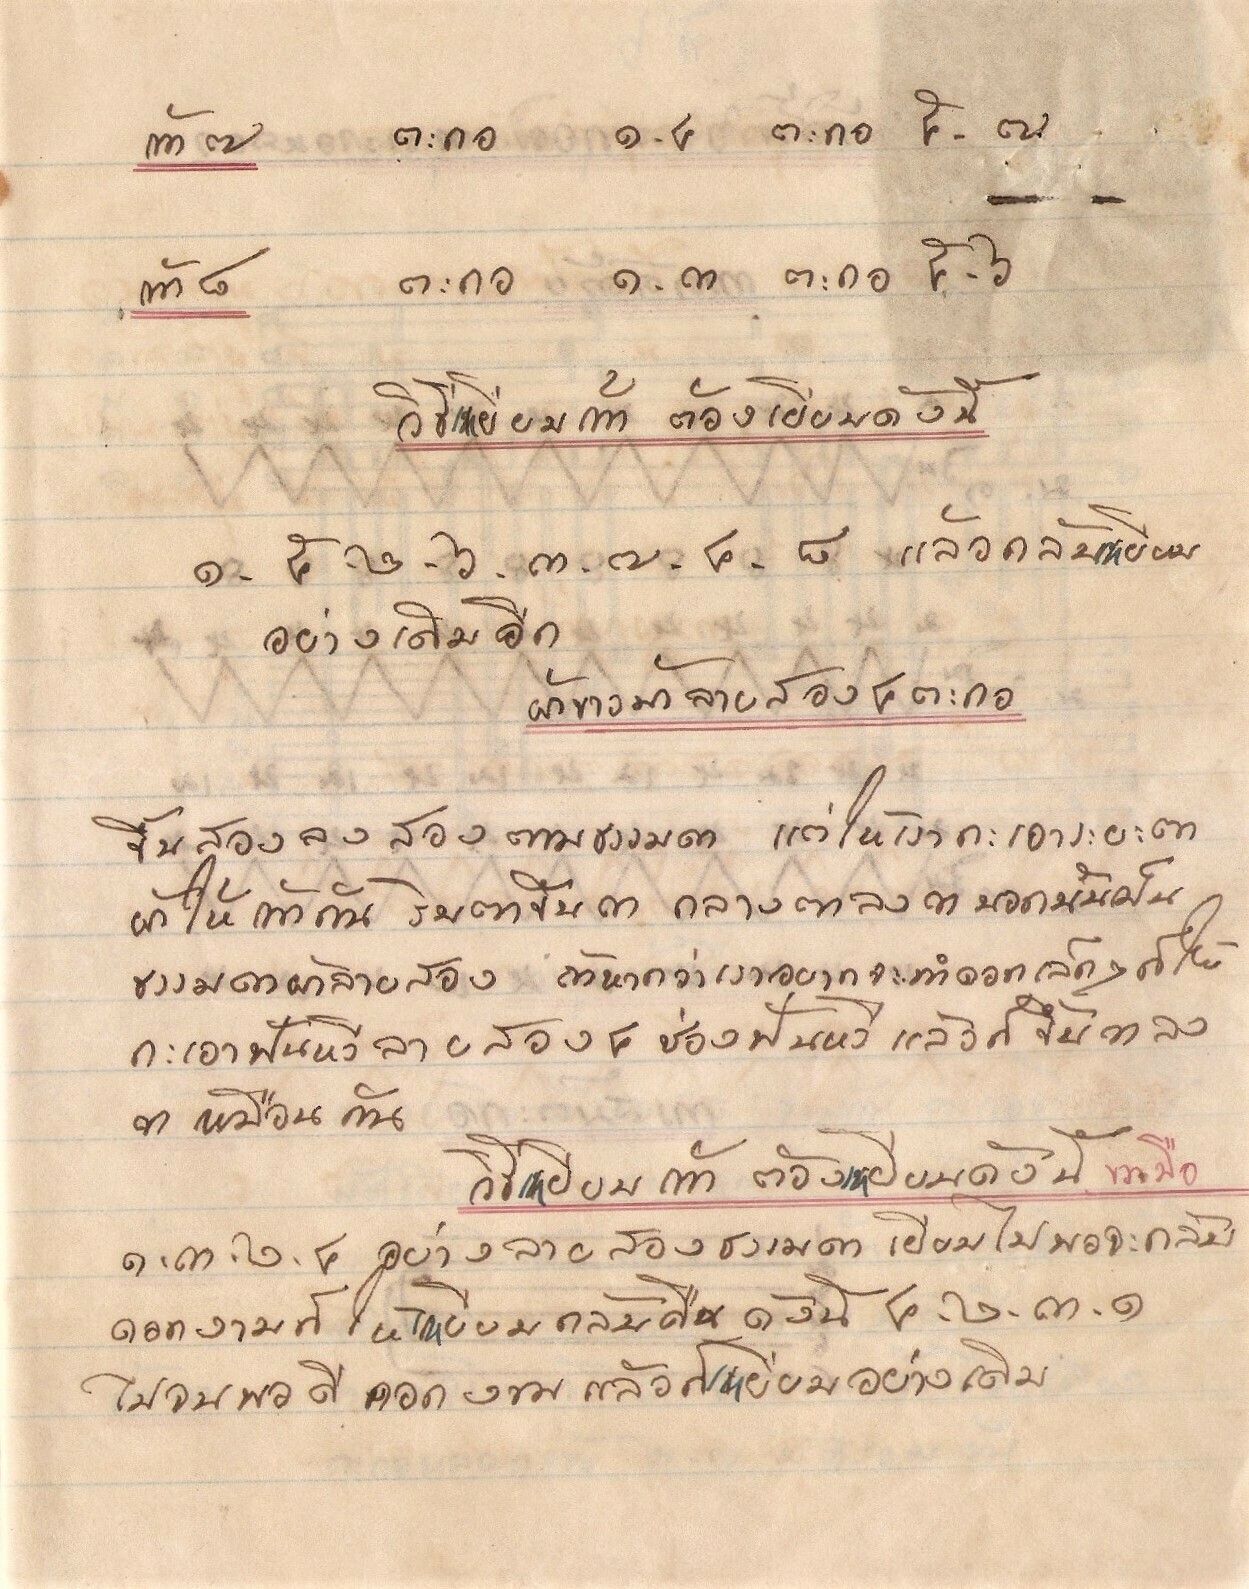 เท้า ๗ ตะกอ ๑-๔ ตะกอ ๕-๗
เท้า ๘ ตะกอ ๑-๓ ตะกอ ๕-๖
วิธีเหยียบเท้า ต้องเยียบดังนี้
๑-๕-๒-๖-๓-๗-๔-๘ แล้วกลับเหยียบ
อย่างเดิมอีก
ผ้าขาวม้าลายสอง ๔ ตะกอ
ขึ้นสองลงสองตามธรรมดา แต่ให้เรากะเอาระยะตา
ผ้าให้เท้ากัน ริมตาขึ้น ๓ กลางตาลง ๓ นอกนั้นเป็น
ธรรมดาผ้าลายสอง ถ้าหากว่าเราอยากจะทำดอกเล็กๆก็ให้
กะเอาฟันหวีลายสอง ๔ ช่องฟันหวี แล้วก็ขึ้น ๓ ลง
๓ เหมือนกัน
วิธีเหยียบเท้า ต้องเหยียบดังนี้ เหมือ
๑-๓-๒-๔ อย่างลายสองธรรมดา เยียบไปพอจะกลับ
ดอกงามก็ให้เหยียบกลับคืน ดังนี้ ๔-๒-๓-๑
ไปจนพอดี ดอกงาม แล้วก็เหยียบอย่างเดิม